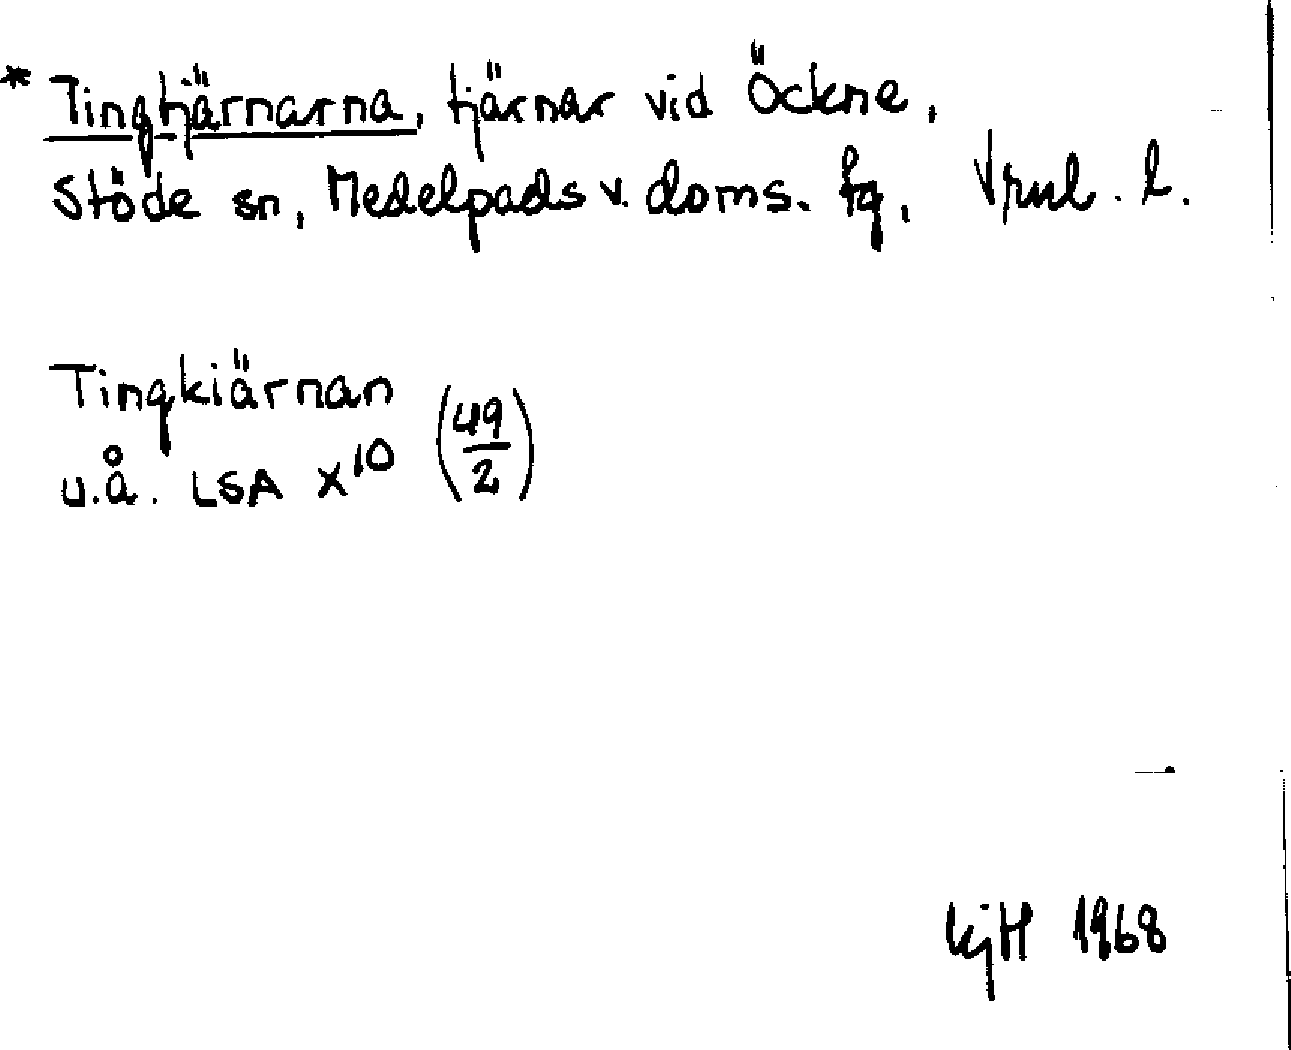 * Tingtjärnarna, tjärnar vid Öckne,
Stöde sn, Medelpads v. doms. fg, Vrnl. l.
Tingkiärnan
u.å. LSA X¹⁰ (49/2)
KjH 1968